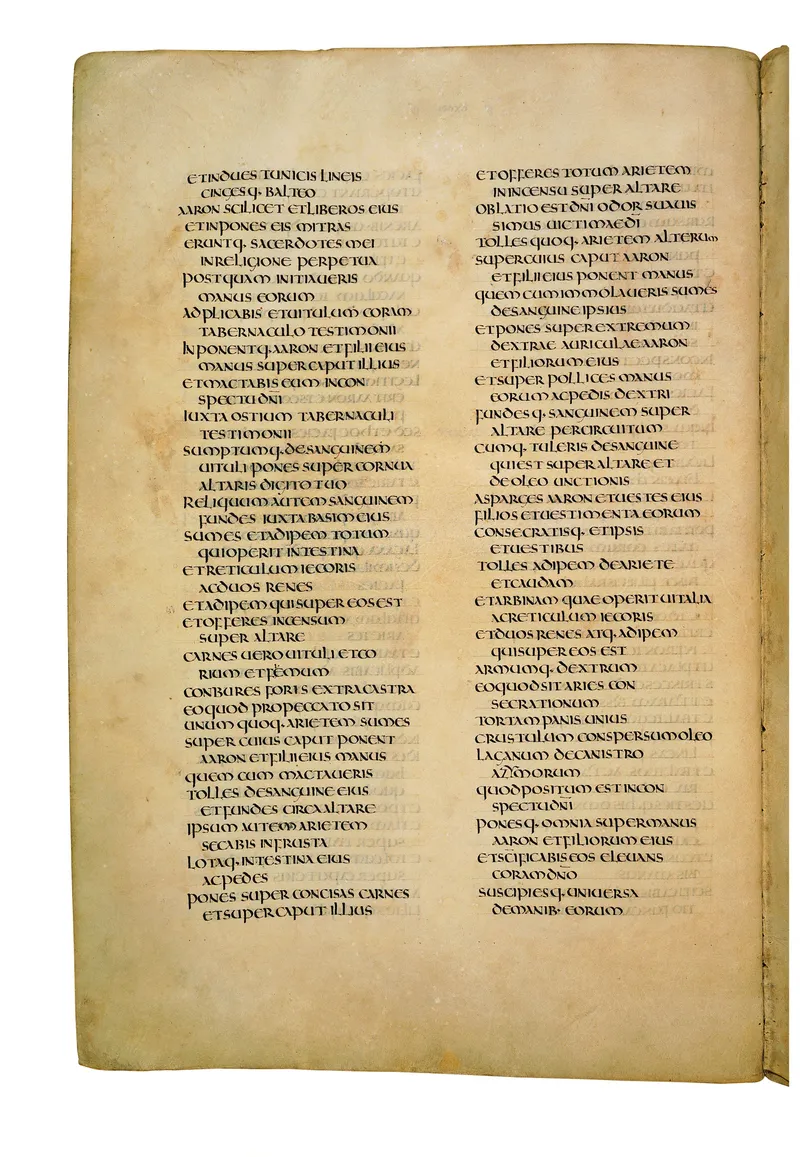 ET INDUES TUNICIS LINEIS
CINGES Q· BALTEO
AARON SCILICET ET LIBEROS EIUS
ET INPONES EIS MITRAS
ERUNT Q· SACERDOTES MEI
IN RELIGIONE PERPETUA
POSTQUAM INITIAUERIS
MANUS EORUM
ADPLICABIS ET UITULUM CORAM
TABERNACULO TESTIMONII
INPONENT Q· AARON ET FILII EIUS
MANUS SUPER CAPUT ILLIUS
ET MACTABIS EUM IN CON
SPECTU DN̄I
IUXTA OSTIUM TABERNACULI
TESTIMONII
SUMPTUM Q· DE SANGUINEM
UITULI PONES SUPER CORNUA
ALTARIS DIGITO TUO
RELIQUUM AUTEM SANGUINEM
FUNDES IUXTA BASIM EIUS
SUMES ET ADIPEM TOTUM
QUI OPERIT INTESTINA
ET RETICULUM IECORIS
AC DUOS RENES
ET ADIPEM QUI SUPER EOS EST
ET OFFERES INCENSUM
SUPER ALTARE
CARNES UERO UITULI ET CO
RIUM ET FEMUM
CONBURES FORIS EXTRA CASTRA
EO QUOD PRO PECCATO SIT
UNUM QUOQ· ARIETEM SUMES
SUPER CUIUS CAPUT PONENT
AARON ET FILII EIUS MANUS
QUEM CUM MACTAUERIS
TOLLES DE SANGUINE EIUS
ET FUNDES CIRCA ALTARE
IPSUM AUTEM ARIETEM
SECABIS IN FRUSTA
LOTAQ· INTESTINA EIUS
AC PEDES
PONES SUPER CONCISAS CARNES
ET SUPER CAPUT ILLIUS
ET OFFERES TOTUM ARIETEM
IN INCENSU SUPER ALTARE
OBLATIO EST DN̄I ODOR SUAUIS
SIMUS UICTIMAE DĪ
TOLLES QUOQ· ARIETEM ALTERUM
SUPER CUIUS CAPUT AARON
ET FILII EIUS PONENT MANUS
QUEM CUM IMMOLAUERIS SUMES
DE SANGUINE IPSIUS
ET PONES SUPER EXTREMUM
DEXTRAE AURICULAE AARON
ET FILIORUM EIUS
ET SUPER POLLICES MANUS
EORUM AC PEDIS DEXTRI
FUNDES Q· SANGUINEM SUPER
ALTARE PER CIRCUITUM
CUM Q· TULERIS DE SANGUINE
QUI EST SUPER ALTARE ET
DE OLEO UNCTIONIS
ASPARGES AARON ET UESTES EIUS
FILIOS ET UESTIMENTA EORUM
CONSECRATIS Q· ET IPSIS
ET UESTIBUS
TOLLES ADIPEM DE ARIETE
ET CAUDAM
ET ARBINAM QUAE OPERIT UITALIA
AC RETICULUM IECORIS
ET DUOS RENES ATQ· ADIPEM
QUI SUPER EOS EST
ARMUM Q· DEXTRUM
EO QUOD SIT ARIES CON
SECRATIONUM
TORTAM PANIS UNIUS
CRUSTULUM CONSPERSUM OLEO
LAGANUM DE CANISTRO
AZYMORUM
QUOD POSITUM EST IN CON
SPECTU DN̄I
PONES Q· OMNIA SUPER MANUS
AARON ET FILIORUM EIUS
ET SC̄IFICABIS EOS ELEUANS
CORAM DN̄O
SUSCIPIES Q· UNIUERSA
DE MANIB· EORUM